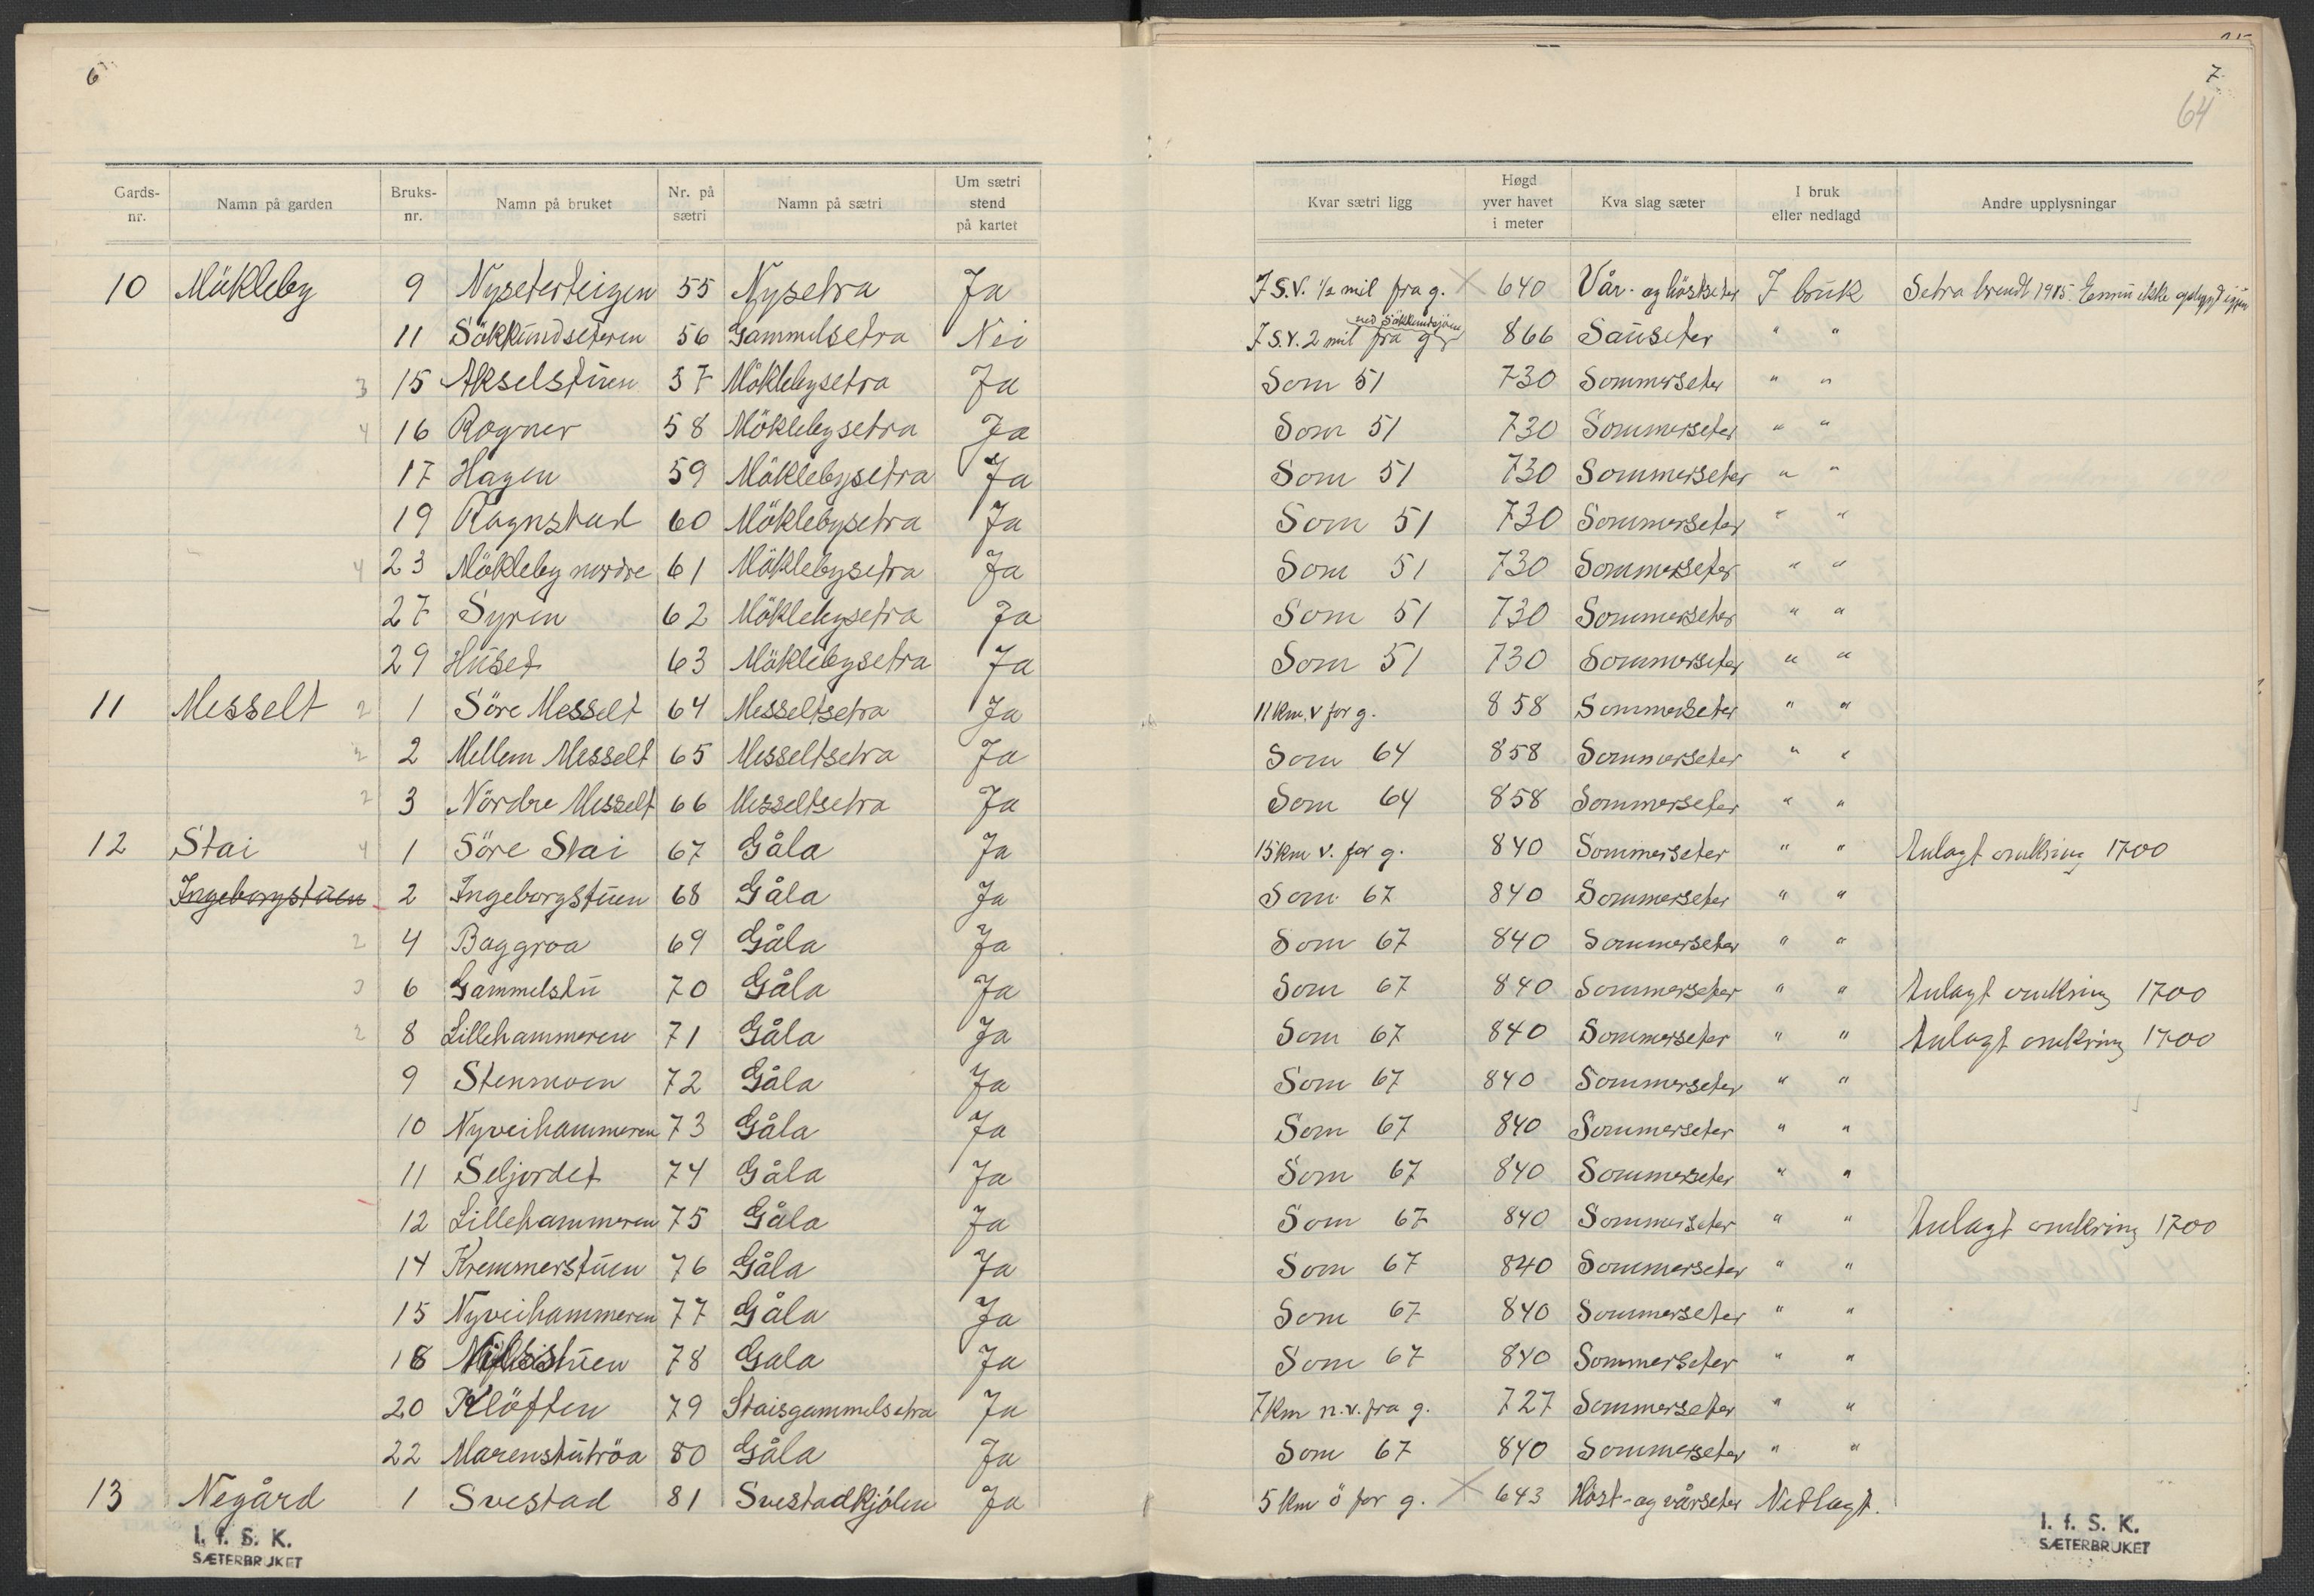 6
Gards-nr. Namn på garden Bruks-nr. Namn på bruket Nr. på sætri Namn på sætri Um sætri stend på kartet
10 Mökleby 9 Nyseterteigen 55 Nysetra Ja
11 Sökkundseteren 56 Gammelsetra Nei
3 15 Akselstuen 57 Möklebysetra Ja
4 16 Rogner 58 Möklebysetra Ja
17 Hagen 59 Möklebysetra Ja
19 Ragnstad 60 Möklebysetra Ja
4 23 Mökleby nordre 61 Möklebysetra Ja
27 Syrin 62 Möklebysetra Ja
29 Huset 63 Möklebysetra Ja
11 Messelt 2 1 Söre Messelt 64 Messeltsetra Ja
2 2 Mellem Messelt 65 Messeltsetra Ja
2 3 Nördre Messelt 66 Messeltsetra Ja
12 Stai 4 1 Söre Stai 67 Gåla Ja
Ingeborgstuen 2 Ingeborgstuen 68 Gåla Ja
2 4 Baggroa 69 Gåla Ja
3 6 Gammelstu 70 Gåla Ja
2 8 Lillehammeren 71 Gåla Ja
9 Stenmoen 72 Gåla Ja
10 Nyveihammeren 73 Gåla Ja
11 Seljordet 74 Gåla Ja
12 Lillehammeren 75 Gåla Ja
14 Kremmerstuen 76 Gåla Ja
15 Nyveihammeren 77 Gåla Ja
18 78 Gala Ja
20 Klöften 79 Staisgammelsetra Ja
22 Marenstutröa 80 Gåla Ja
13 Negård 1 Svestad 81 Svestadkjölen Ja
I. f. S. K.
SÆTERBRUKET
7
64
Kvar sætri ligg Høgd yver havet i meter Kva slag sæter I bruk eller nedlagd Andre upplysningar
I S.V. 1/2 mil fra g. X 640 Vår- og höstseter I bruk Setra brendt 1915. Ennu ikke opbygd igjen
ved Sökkundsjöen
I S.V. 2 mil fra g. 866 Sauseter " "
Som 51 730 Sommerseter " "
Som 51 730 Sommerseter " "
Som 51 730 Sommerseter " "
Som 51 730 Sommerseter " "
Som 51 730 Sommerseter " "
Som 51 730 Sommerseter " "
Som 51 730 Sommerseter " "
11 km. v for g. 858 Sommerseter " "
Som 64 858 Sommerseter " "
Som 64 858 Sommerseter " "
15 km v. for g. 840 Sommerseter " " Anlagt omkring 1700
Som 67 840 Sommerseter " "
Som 67 840 Sommerseter " "
Som 67 840 Sommerseter " " Anlagt omkring 1700
Som 67 840 Sommerseter " " Anlagt omkring 1700
Som 67 840 Sommerseter " "
Som 67 840 Sommerseter " "
Som 67 840 Sommerseter " "
Som 67 840 Sommerseter " " Anlagt omkring 1700
Som 67 840 Sommerseter " "
Som 67 840 Sommerseter " "
Som 67 840 Sommerseter " "
7 km n.v. fra g. 727 Sommerseter " "
Som 67 840 Sommerseter " "
5 km ö for g. X 643 Höst- og vårseter Nedlagt.
I. f. S. K.
SÆTERBRUKET